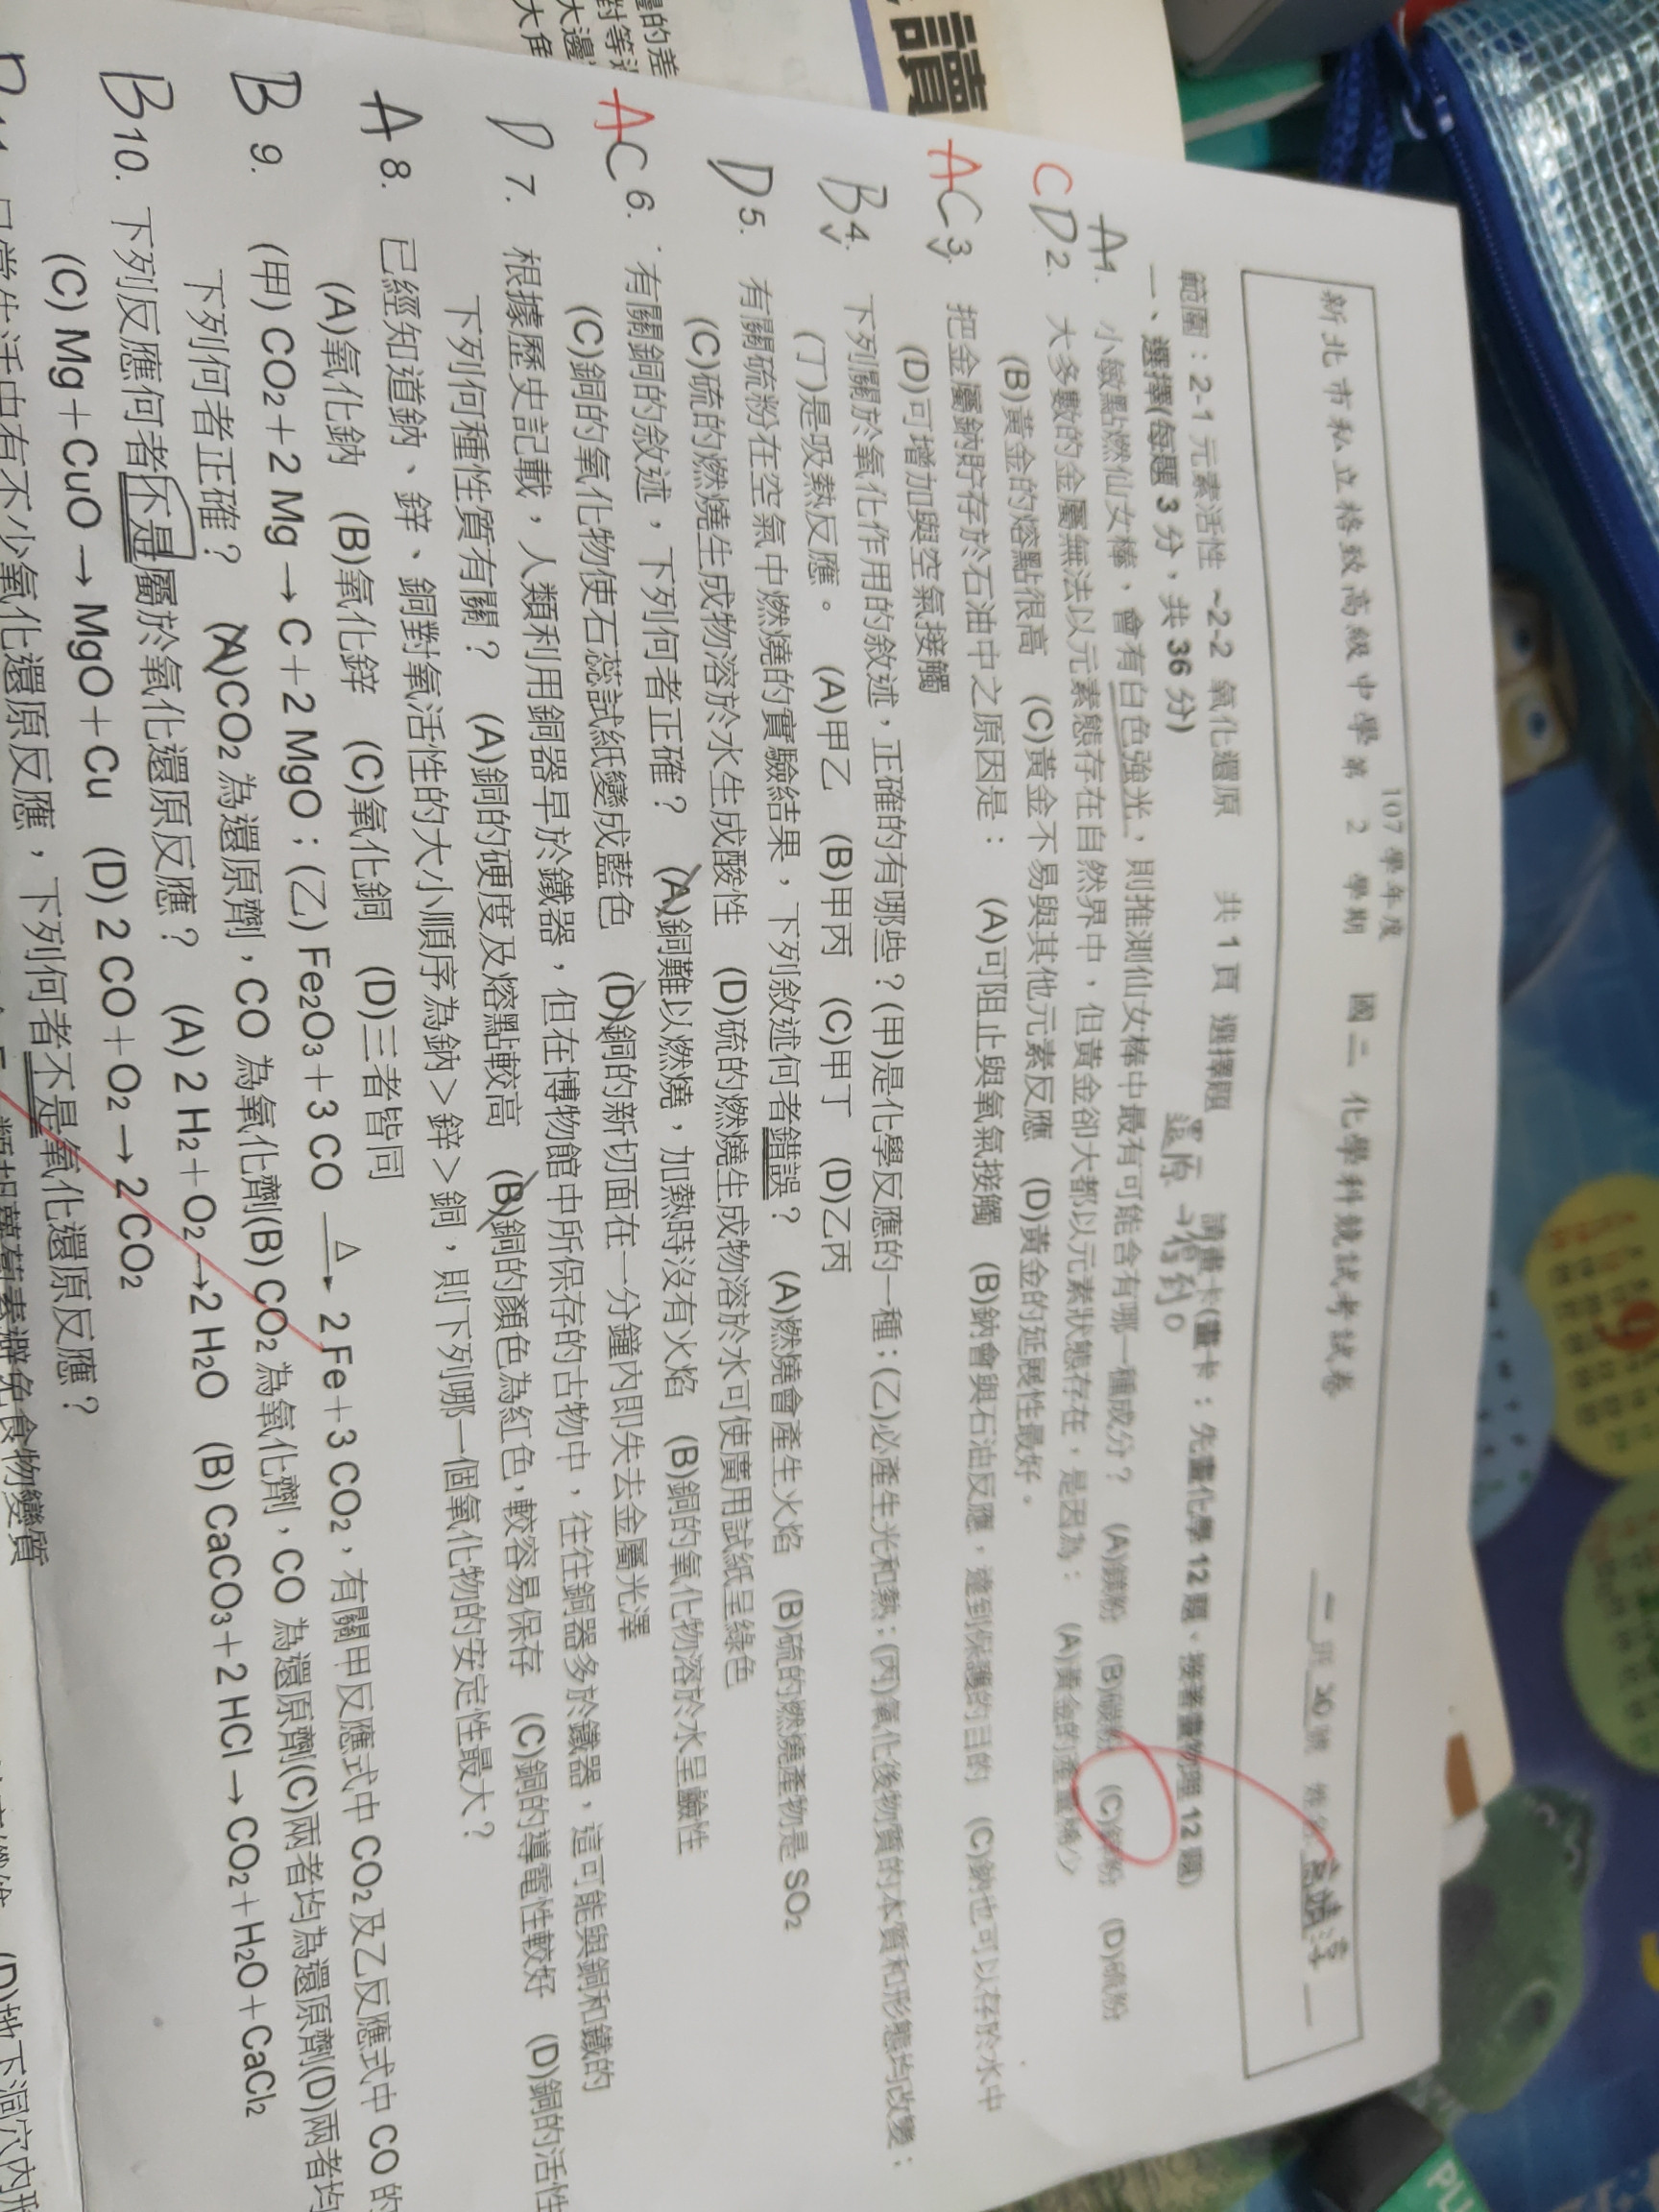 讀
107 學年度
新北市私立格致高級中學第 2 學期 國二 化學科競試考試卷
範圍：2-1 元素活性 ~2-2 氧化還原 共 1 頁 選擇題 請畫卡(畫卡：先畫化學 12 題、接著畫物理 12 題)
還原→得到O
一、選擇(每題 3 分，共 36 分)
A 1. 小敏點燃仙女棒，會有白色強光，則推測仙女棒中最有可能含有哪一種成分？ (A)鎂粉 (B)碳粉 (C)鋅粉 (D)硫粉
C D 2. 大多數的金屬無法以元素態存在自然界中，但黃金卻大都以元素狀態存在，是因為： (A)黃金的產量稀少
(B)黃金的熔點很高 (C)黃金不易與其他元素反應 (D)黃金的延展性最好。
A C 3. 把金屬鈉貯存於石油中之原因是： (A)可阻止與氧氣接觸 (B)鈉會與石油反應，達到保護的目的 (C)鈉也可以存於水中
(D)可增加與空氣接觸
B 4. 下列關於氧化作用的敘述，正確的有哪些？(甲)是化學反應的一種；(乙)必產生光和熱；(丙)氧化後物質的本質和形態均改變；
(丁)是吸熱反應。 (A)甲乙 (B)甲丙 (C)甲丁 (D)乙丙
D 5. 有關硫粉在空氣中燃燒的實驗結果，下列敘述何者錯誤？ (A)燃燒會產生火焰 (B)硫的燃燒產物是 SO₂
(C)硫的燃燒生成物溶於水生成酸性 (D)硫的燃燒生成物溶於水可使廣用試紙呈綠色
A C 6. 有關銅的敘述，下列何者正確？ (A)銅難以燃燒，加熱時沒有火焰 (B)銅的氧化物溶於水呈鹼性
(C)銅的氧化物使石蕊試紙變成藍色 (D)銅的新切面在一分鐘內即失去金屬光澤
D 7. 根據歷史記載，人類利用銅器早於鐵器，但在博物館中所保存的古物中，往往銅器多於鐵器，這可能與銅和鐵的
下列何種性質有關？ (A)銅的硬度及熔點較高 (B)銅的顏色為紅色，較容易保存 (C)銅的導電性較好 (D)銅的活性
A 8. 已經知道鈉、鋅、銅對氧活性的大小順序為鈉＞鋅＞銅，則下列哪一個氧化物的安定性最大？
(A)氧化鈉 (B)氧化鋅 (C)氧化銅 (D)三者皆同
B 9. (甲) CO₂＋2 Mg → C＋2 MgO；(乙) Fe₂O₃＋3 CO △→ 2 Fe＋3 CO₂，有關甲反應式中 CO₂ 及乙反應式中 CO 的
下列何者正確？ (A)CO₂ 為還原劑，CO 為氧化劑(B) CO₂ 為氧化劑，CO 為還原劑(C)兩者均為還原劑(D)兩者均
B 10. 下列反應何者不是屬於氧化還原反應？ (A) 2 H₂＋O₂→2 H₂O (B) CaCO₃＋2 HCl → CO₂＋H₂O＋CaCl₂
(C) Mg＋CuO → MgO＋Cu (D) 2 CO＋O₂→ 2 CO₂
日常生活中有不少氧化還原反應，下列何者不是氧化還原反應？